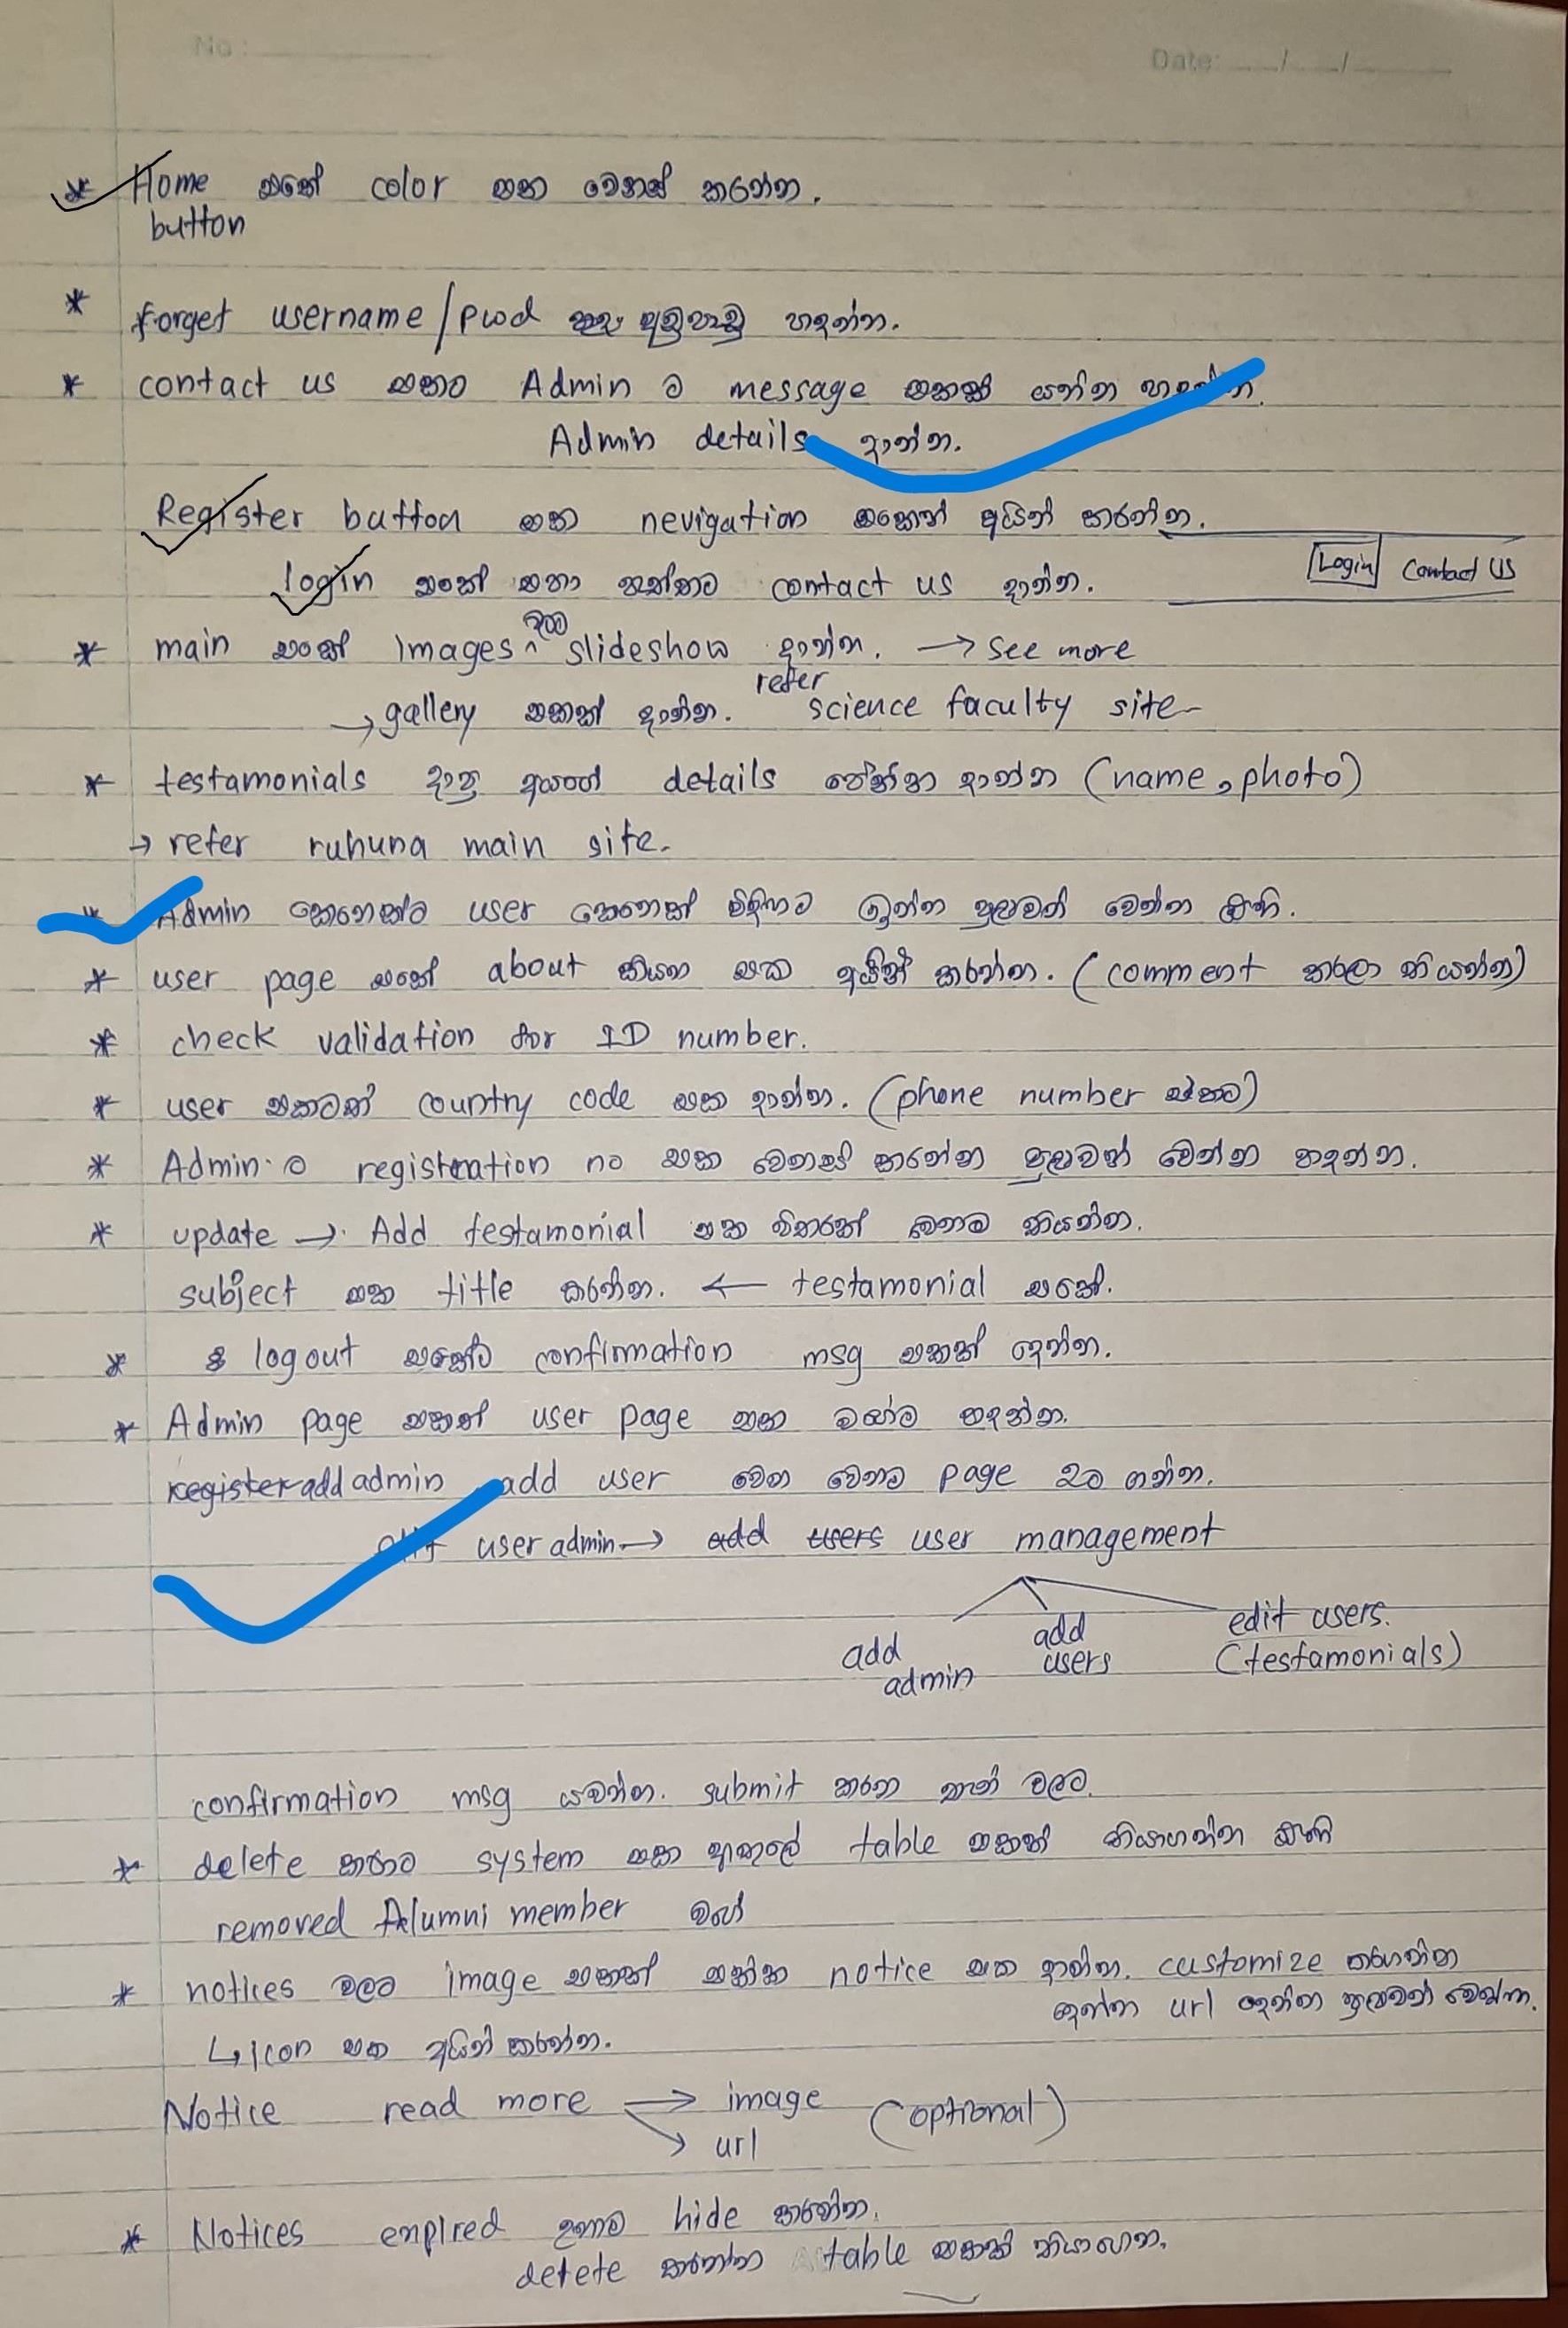 No :
Date: / /
Home එකේ color එක වෙනස් කරන්න.
button
forget username/pwd අඩුපාඩු හදන්න.
contact us එකට Admin ට message එකක් යන්න හදන්න.
Admin details දාන්න.
Register button එක nevigation එකෙන් අයින් කරන්න.
login එකේ එහා පැත්තට contact us දාන්න.
Login Contact US
main එකේ images දාලා slideshow දාන්න. → see more
→ gallery එකක් දාන්න. refer science faculty site
testamonials දාපු අයගේ details පේන්න දාන්න (name, photo)
→ refer ruhuna main site.
Admin කෙනෙක්ට user කෙනෙක් විදිහට ඉන්න පුළුවන් වෙන්න ඕනි.
user page එකේ about කියන එක අයින් කරන්න. (comment කරලා තියන්න)
check validation for ID number.
user එකටත් country code එක දාන්න. (phone number එකට)
Admin ට registration no එක වෙනස් කරන්න පුළුවන් වෙන්න හදන්න.
update → Add testamonial එක විතරක් වෙනම තියන්න.
subject එක title කරන්න. ← testamonial එකේ.
logout එකේට confirmation msg එකක් දෙන්න.
Admin page එකත් user page එක වගේම හදන්න.
register add admin add user වෙන වෙනම page 2ට ගන්න.
user admin → add users user management
add admin
add users
edit users.
(testamonials)
confirmation msg යවන්න. submit කරන තැන් වලට.
delete කරාට system එක ඇතුලේ table එකක් තියාගන්න ඕනි
removed Alumni member වගේ
notices වලට image එකක් එක්ක notice එක දාන්න. customize කරගන්න
දෙන්න url දෙන්න පුළුවන් වෙන්න.
↳ icon එක අයින් කරන්න.
Notice read more → image (optional)
→ url
Notices enpired උනාම hide කරන්න.
detete කරන්න table එකක් තියාගන්න.